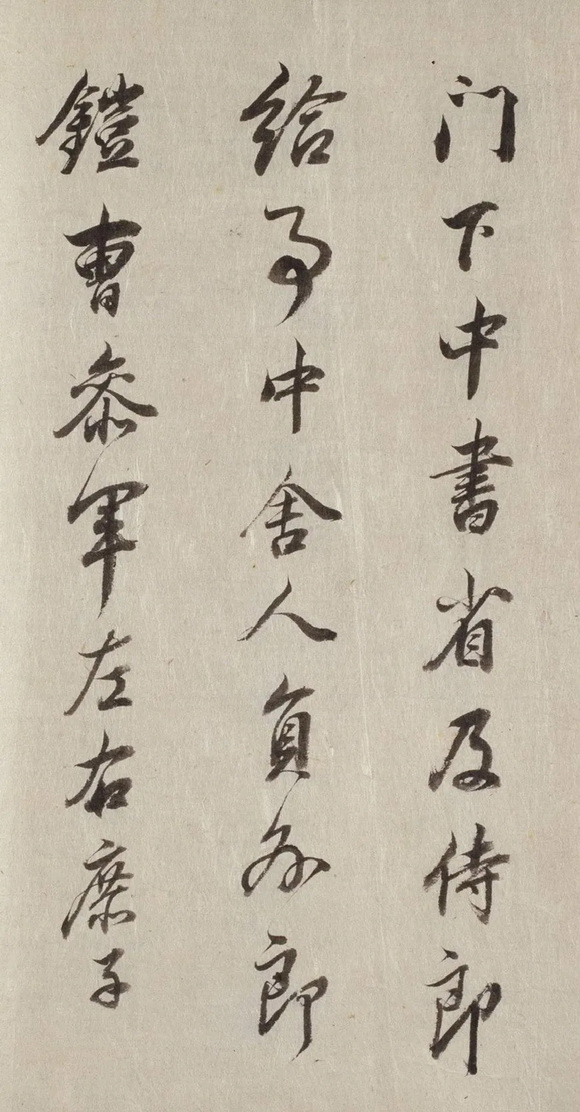 门下中書省及侍郎
給事中舍人員外郎
鎧曹叅軍左右庶子